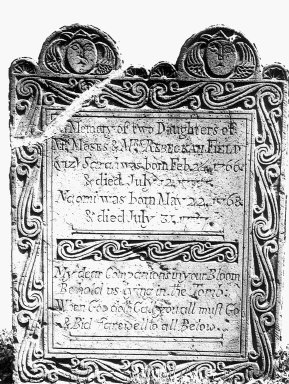 In Memory of two Daughters of
Mr. MOSES & Mrs. REBECKAH FIELD
(Viz) Sarah was born Feb 1766
& died July
Naomi was born May 22, 1768
& died July
My dear Companions in your Bloom
Behold us lying in the Tomb
When GOD doth Call you all must Go
& Bid farewell to all Below.